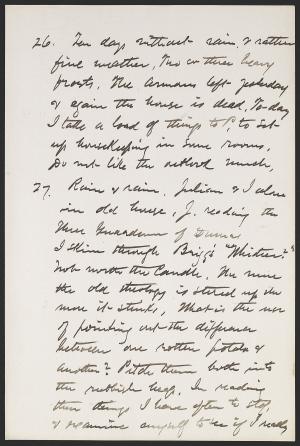 26. Ten days without rain & rather
fine weather, Two or three heavy
frosts. The Armours left yesterday
& again the house is dead. To-day
I take a load of things to P, to set
up housekeeping in some rooms.
Do not like the outlook much,
27. Rain & rain. Julian & I alone
in old house, J. reading the
Three Guardsmen of Dumas
I skim through Briggs "Whither?"
Not worth the Candle. The more
the old theology is stirred up the
more it stinks, What is the use
of pointing out the difference
between one rotten potato &
another? Pitch them both into
the rubbish heap. In reading
these things I have often to stop
& examine myself to see if I really